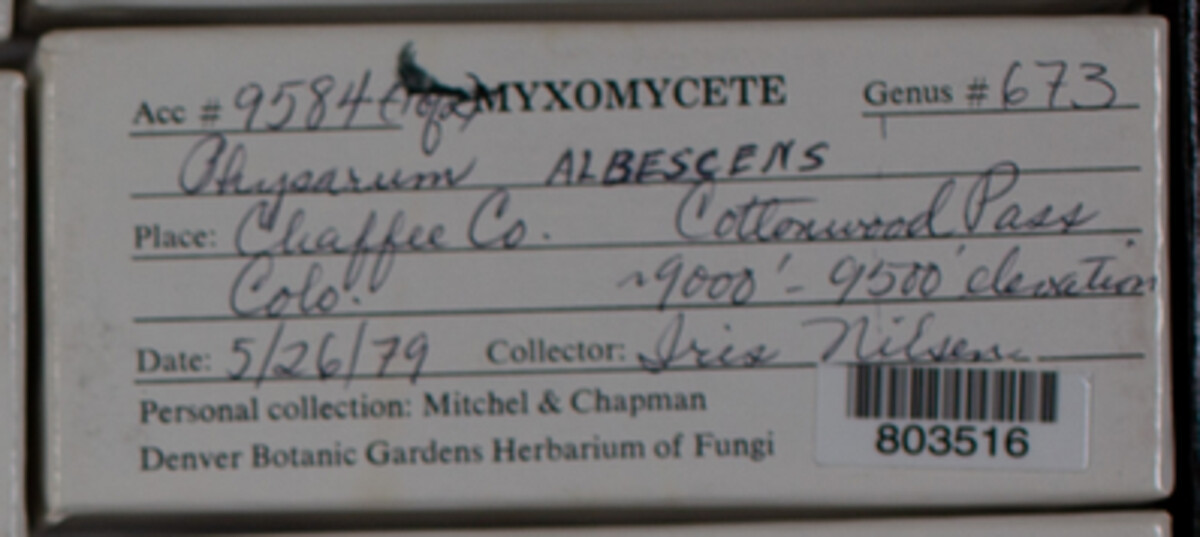 Acc # 9584 MYXOMYCETE Genus # 673
Physarum ALBESCENS
Place: Chaffee Co. Cottonwood Pass
Colo. ~9000' - 9500' elevation
Date: 5/26/79 Collector: Iris Nilsen
Personal collection: Mitchel & Chapman
Denver Botanic Gardens Herbarium of Fungi
803516